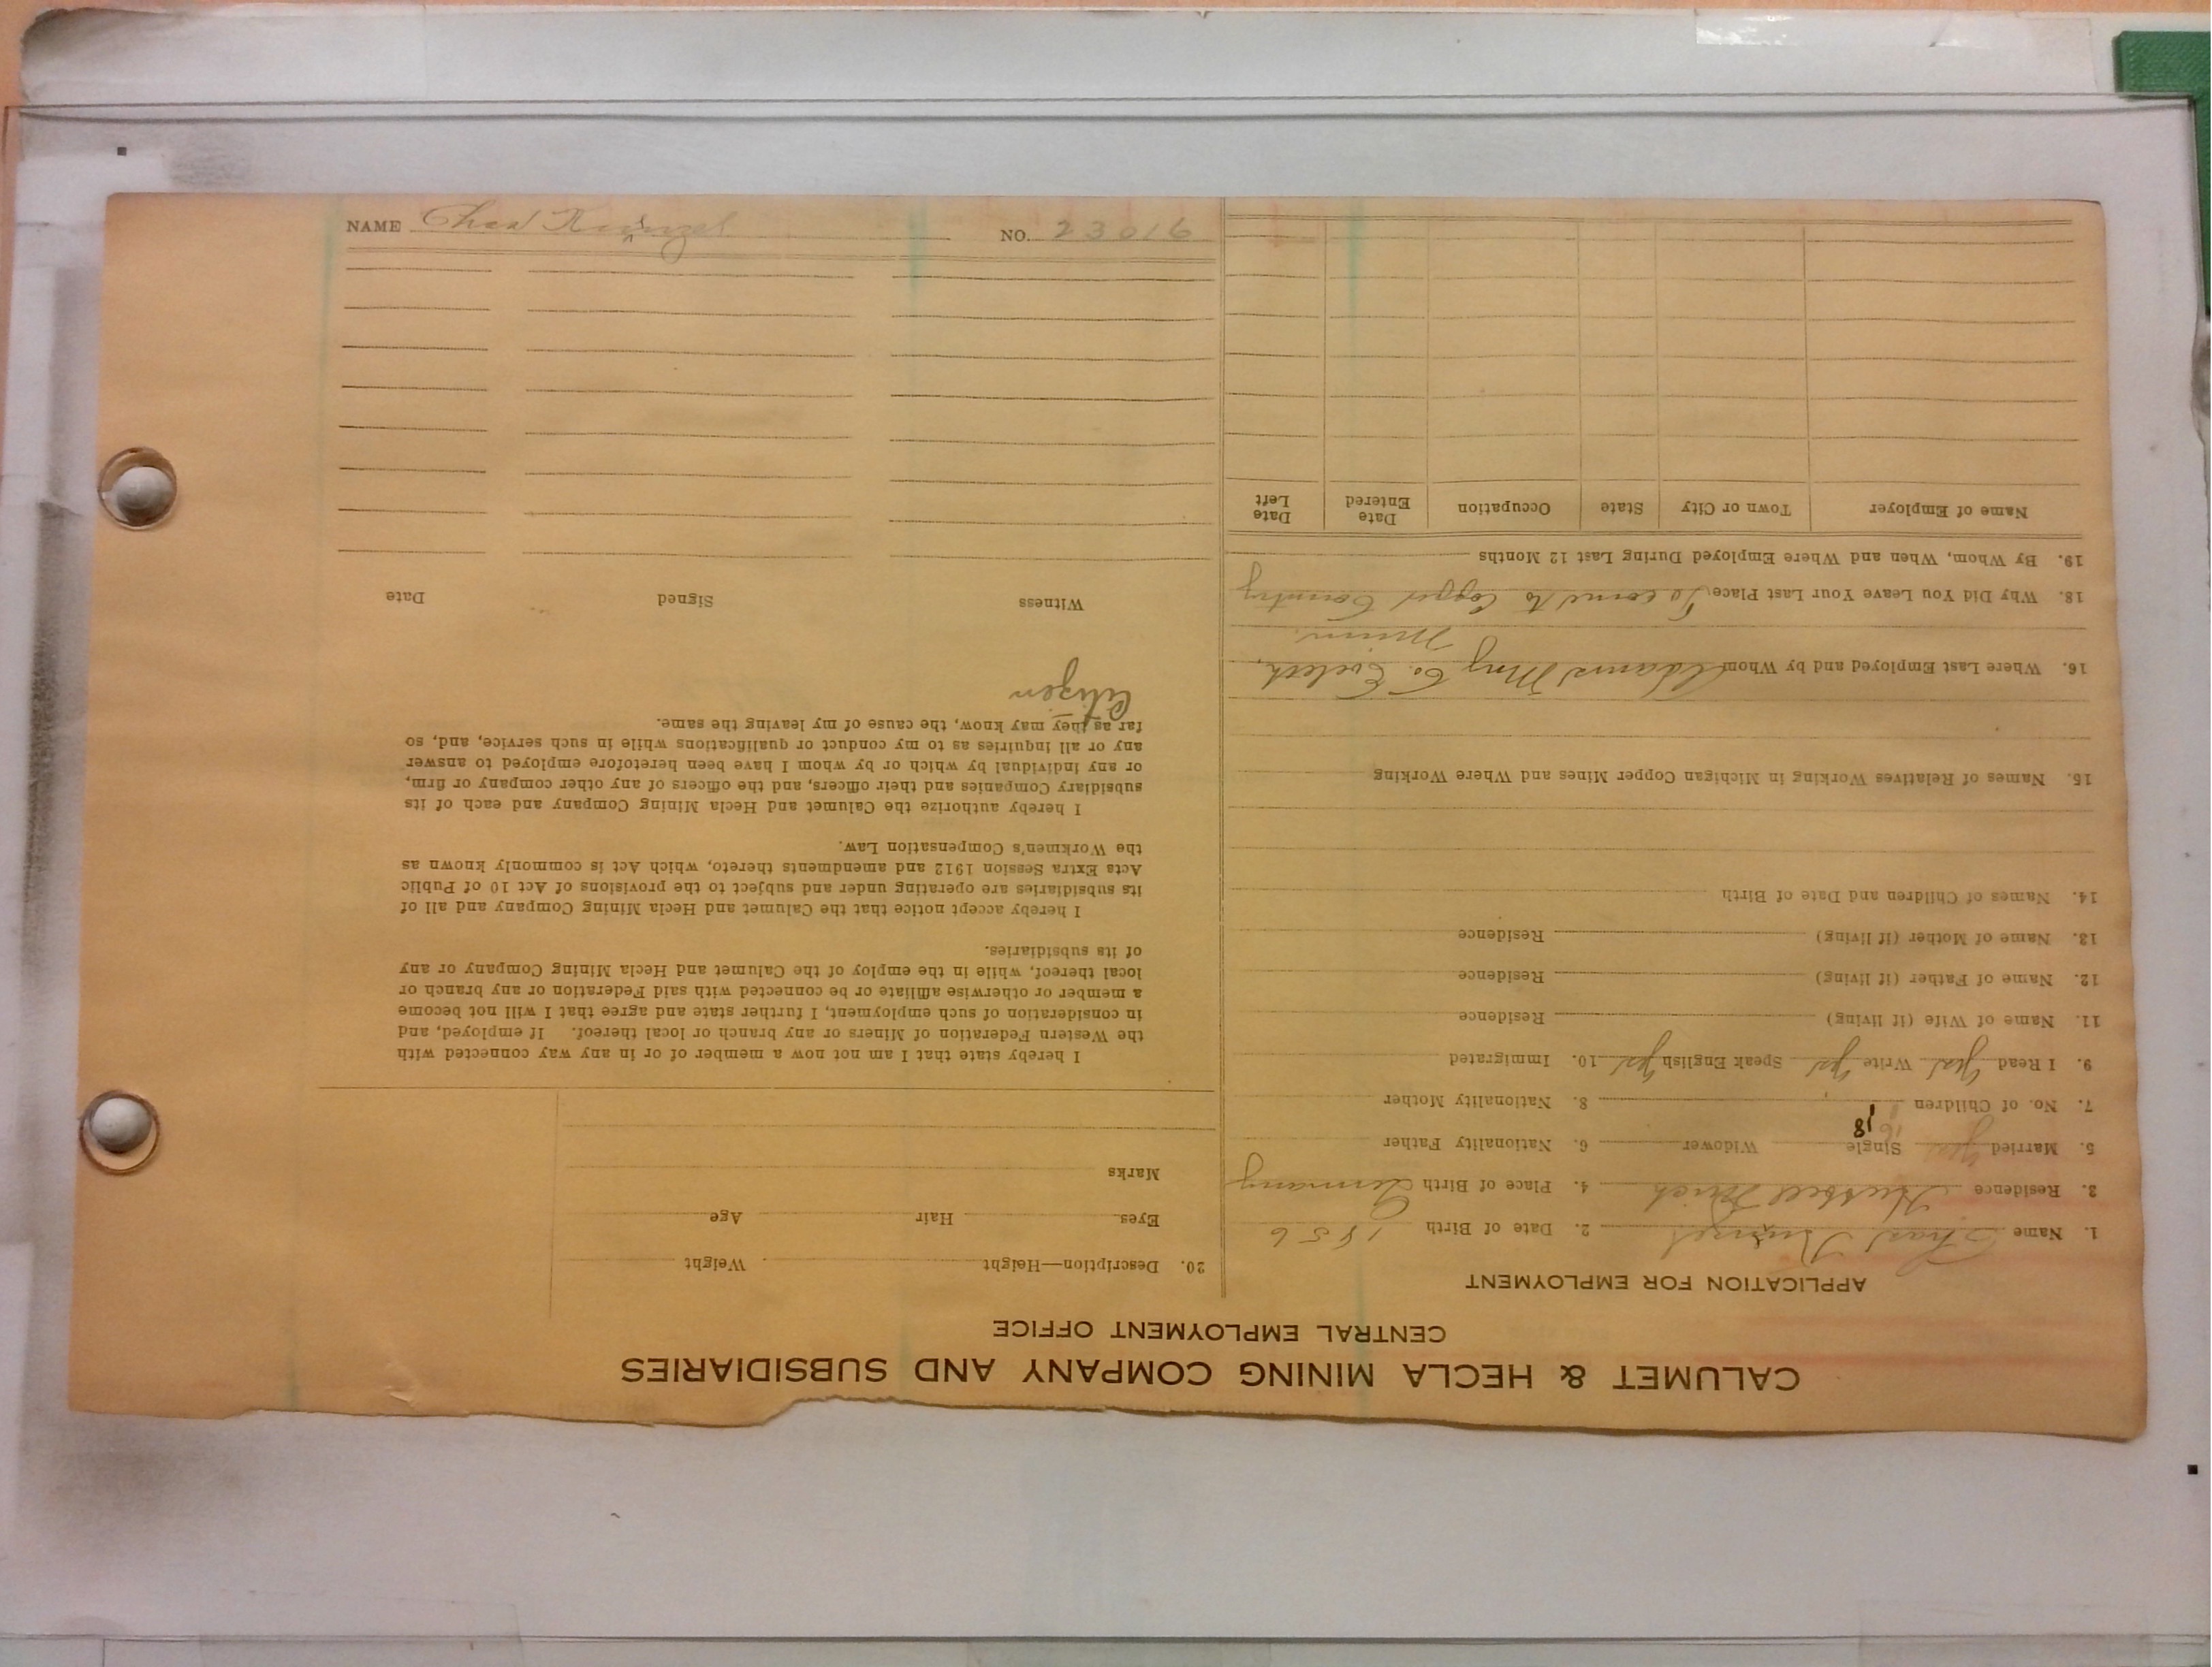 CALUMET & HECLA MINING COMPANY AND SUBSIDIARIES
CENTRAL EMPLOYMENT OFFICE
APPLICATION FOR EMPLOYMENT
1. Name Chas Kunzel 2. Date of Birth 1856
3. Residence Hubbell Mich 4. Place of Birth Germany
5. Married Yes Single Widower 6. Nationality Father
18
7. No. of Children 8. Nationality Mother
9. I Read Yes Write Yes Speak English Yes 10. Immigrated
11. Name of Wife (if living) Residence
12. Name of Father (if living) Residence
13. Name of Mother (if living) Residence
14. Names of Children and Date of Birth
15. Names of Relatives Working in Michigan Copper Mines and Where Working
16. Where Last Employed and by Whom Adams Mng Co. Eveleth,
Minn.
18. Why Did You Leave Your Last Place To come to Copper Country
19. By Whom, When and Where Employed During Last 12 Months
Name of Employer Town or City State Occupation Date Entered Date Left
20. Description—Height Weight
Eyes Hair Age
Marks
I hereby state that I am not now a member of or in any way connected with
the Western Federation of Miners or any branch or local thereof. If employed, and
in consideration of such employment, I further state and agree that I will not become
a member or otherwise affiliate or be connected with said Federation or any branch or
local thereof, while in the employ of the Calumet and Hecla Mining Company or any
of its subsidiaries.
I hereby accept notice that the Calumet and Hecla Mining Company and all of
its subsidiaries are operating under and subject to the provisions of Act 10 of Public
Acts Extra Session 1912 and amendments thereto, which Act is commonly known as
the Workmen's Compensation Law.
I hereby authorize the Calumet and Hecla Mining Company and each of its
subsidiary Companies and their officers, and the officers of any other company or firm,
or any individual by which or by whom I have been heretofore employed to answer
any or all inquiries as to my conduct or qualifications while in such service, and, so
far as they may know, the cause of my leaving the same.
Citizen
Witness Signed Date
NAME Chas Kunzel NO. 23016